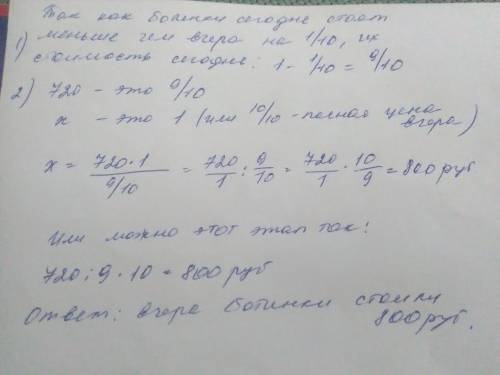 Так как ботинки сегодня стоят
1) меньше чем вчера на 1/10, их
стоимость сегодня: 1 - 1/10 = 9/10
2) 720 - это 9/10
x - это 1 (или 10/10 - полная цена вчера)
x = 720·1 / 9/10 = 720/1 : 9/10 = 720/1 · 10/9 = 800 руб
Или можно этот этап так:
720 : 9 · 10 = 800 руб
Ответ: вчера ботинки стоили
800 руб.